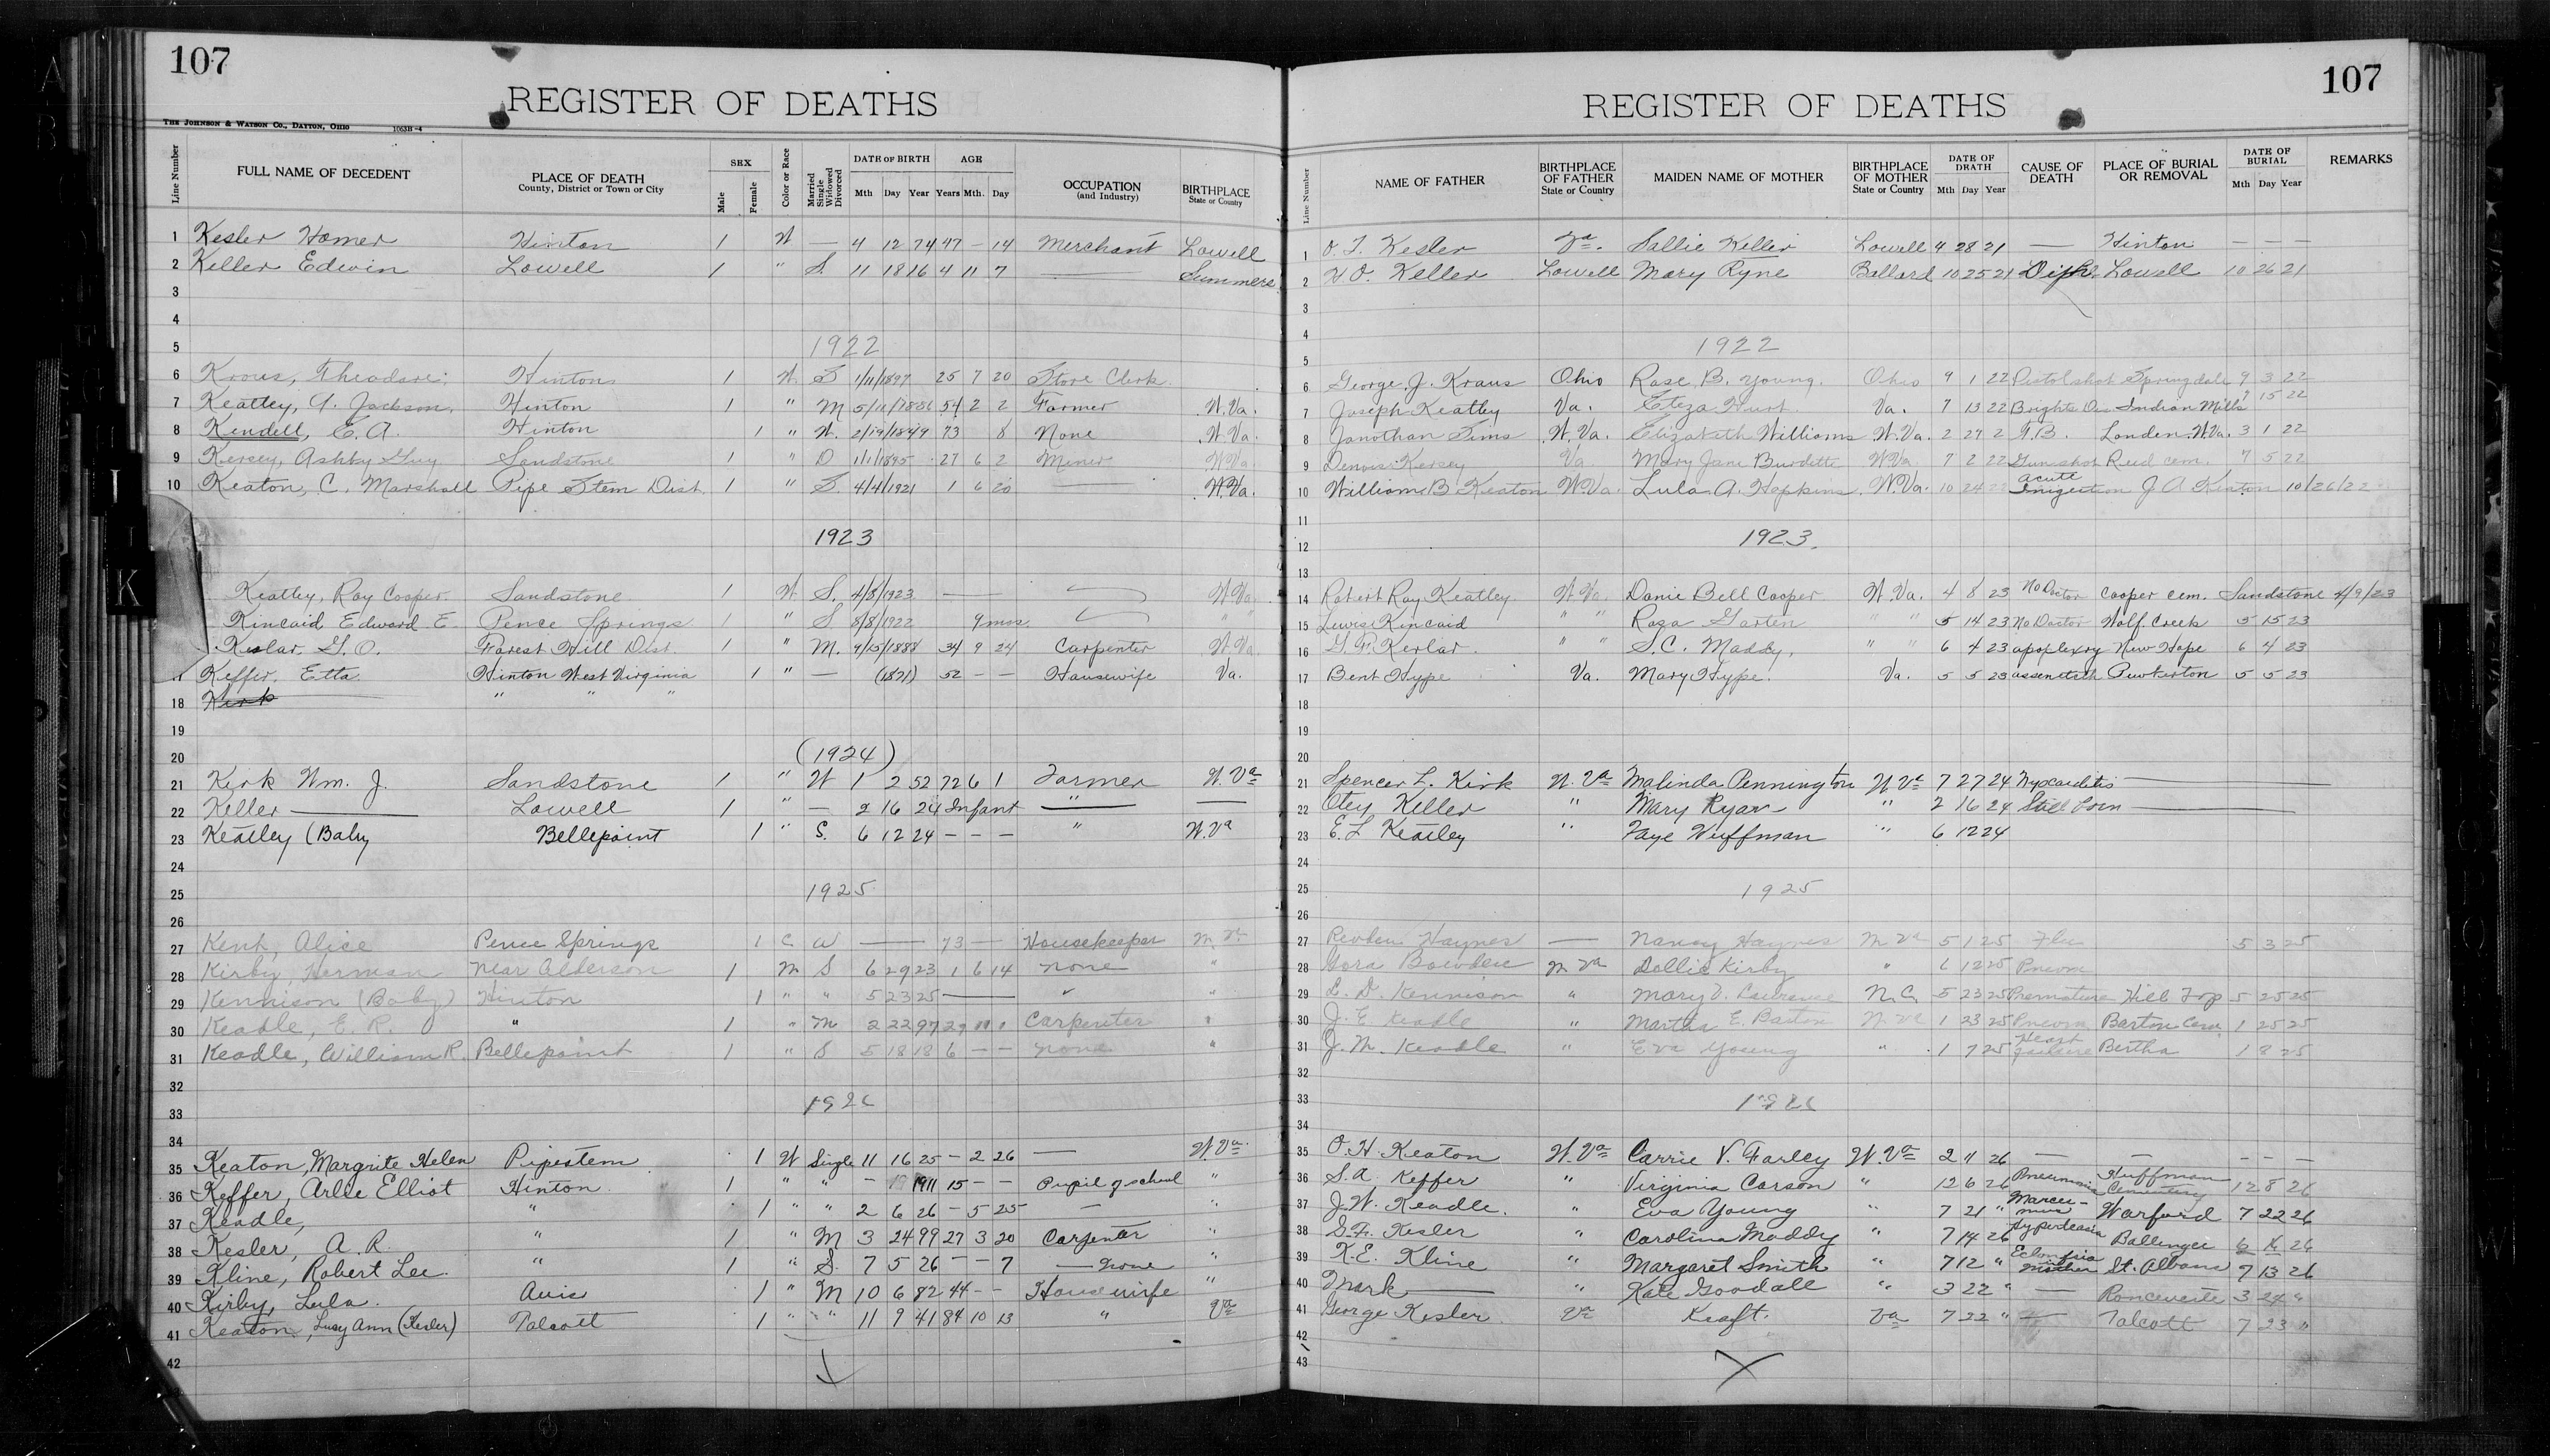 107
REGISTER OF DEATHS
THE JOHNSON & WATSON CO., DAYTON, OHIO 1063B-4
Line Number FULL NAME OF DECEDENT PLACE OF DEATH County, District or Town or City SEX Male Female Color or Race Married Single Widowed Divorced DATE OF BIRTH Mth Day Year AGE Years Mth. Day OCCUPATION (and Industry) BIRTHPLACE State or Country
1 Kesler Homer Hinton 1 W — 4 12 74 47 — 14 Merchant Lowell
2 Keller Edwin Lowell 1 " S. 11 18 16 4 11 7 — Summers
3
4
5 1922
6 Kraus, Theodore Hinton 1 W S 1/11/1897 25 7 20 Store Clerk
7 Keatley, A. Jackson, Hinton 1 " M 5/11/1868 54 2 2 Farmer W.Va.
8 Kendell, E. A. Hinton 1 " W. 2/19/1849 73 8 None W.Va.
9 Kersey, Ashby Guy Sandstone 1 " D 1/1/1895 27 6 2 Miner W.Va
10 Keaton, C. Marshall Pipe Stem Dist. 1 " S. 4/4/1921 1 6 20 — W.Va.
1923
Keatley, Roy Cooper Sandstone 1 W S. 4/8/1923 — W.Va
Kincaid Edward E Pence Springs 1 " S 8/8/1922 9 mos. "
Keslar G. O. Forest Hill Dist. 1 " M. 9/15/1888 34 9 24 Carpenter W.Va
Keffer, Etta Hinton West Virginia 1 " — (1871) 52 — — Housewife Va.
18 Kirk " " "
19
20 (1924)
21 Kirk Wm. J. Sandstone 1 " W 1 2 52 72 6 1 Farmer W.Va
22 Keller — Lowell 1 " — 2 16 24 Infant " —
23 Keatley (Baby Bellepoint 1 " S. 6 12 24 — — — " W.Va
24
25 1925
26
27 Kent, Alice Pence Springs 1 C W — 73 — Housekeeper W Va
28 Kirby, Herman Near Alderson 1 W S 6 29 23 1 6 14 none "
29 Kennison (Baby) Hinton 1 " " 5 23 25 — " "
30 Keadle, E. R. " 1 " M 2 22 97 27 11 1 Carpenter "
31 Keadle, William R. Bellepoint 1 " S 5 18 18 6 — — none "
32
33 1926
34
35 Keaton, Margrite Helen Pipestem 1 W Single 11 16 25 — 2 26 — W.Va.
36 Keffer, Arlie Elliot Hinton 1 " " — 1911 15 — — Pupil of school "
37 Keadle, " 1 " " 2 6 26 — 5 25 — "
38 Kesler, A. R. " 1 " M 3 24 99 27 3 20 Carpenter "
39 Kline, Robert Lee " 1 " S. 7 5 26 — — 7 — none "
40 Kirby, Lula. Avis 1 " M 10 6 82 44 — — Housewife "
41 Keaton, Lucy Ann (Kesler) Talcott 1 " " 11 9 41 84 10 13 " Va
42
107
REGISTER OF DEATHS
Line Number NAME OF FATHER BIRTHPLACE OF FATHER State or Country MAIDEN NAME OF MOTHER BIRTHPLACE OF MOTHER State or Country DATE OF DEATH Mth Day Year CAUSE OF DEATH PLACE OF BURIAL OR REMOVAL DATE OF BURIAL Mth Day Year REMARKS
1 O. T. Kesler Va. Sallie Keller Lowell 4 28 21 — Hinton — — —
2 H. O. Keller Lowell Mary Ryne Ballard 10 25 21 Diph. Lowell 10 26 21
3
4 1922
5
6 George. J. Kraus Ohio Rose B. Young. Ohio 9 1 22 Pistol shot Springdale 9 3 22
7 Joseph Keatley Va. Hurt Va. 7 13 22 Brights Dis. Indian Mills 7 15 22
8 Jonothan Sims W.Va. Elizabeth Williams W.Va. 2 27 2 T.B. London W.Va. 3 1 22
9 Dennis Kersey Va. Mary Jane Burdette W.Va 7 2 22 Gunshot Reid cem. 7 5 22
10 William B Keaton W.Va. Lula A. Hopkins W.Va. 10 24 22 acute Inigestion J A Keaton 10/26/22
11
12 1923.
13
14 Robert Roy Keatley W.Va. Danie Bell Cooper W.Va. 4 8 23 No Doctor Cooper cem. Sandstone 4/9/23
15 Lewis Kincaid " " Roza Garten " " 5 14 23 No Doctor Wolf Creek 5 15 23
16 G. F. Keslar. " " S.C. Maddy, " " 6 4 23 apoplexy New Hope 6 4 23
17 Bent Hype Va. Mary Hype. Va. 5 5 23 5 5 23
18
19
20
21 Spencer L. Kirk W.Va Malinda Pennington W Va 7 27 24 Myocarditis —
22 Otey Keller " Mary Ryan " 2 16 24 Still born —
23 E. L Keatley " Faye Huffman " 6 12 24
24
25 1925
26
27 Reuben Haynes — Nancy Haynes W Va 5 1 25 Flu 5 3 25
28 Gora Bowden W Va Dollie Kirby " 1 12 25 Pneum
29 L. D. Kennison " Mary V. Lawrence N.C. 5 23 25 Premature Hill Top 5 25 25
30 J. E Keadle " Martha E. Barton W Va 1 23 25 Pneum Barton Cem 1 25 25
31 J. W. Keadle " Eva Young " 1 7 25 Heart failure Bertha 1 8 25
32
33 1926
34
35 O. H. Keaton W.Va Carrie V. Farley W.Va 2 11 26 — — — — —
36 S. A. Keffer " Virginia Carson " 12 6 26 Pneumonia Huffman Cemetery 12 8 26
37 J. W. Keadle. " Eva Young " 7 21 " Warford 7 22 26
38 G. F. Kesler " Carolina Maddy " 7 14 26 Hypertension Ballengee 26
39 K. E. Kline " Margaret Smith " 7 12 " Eclampsia Mother St. Albans 7 13 26
40 Mark — " Kate Goodall " 3 22 " — Ronceverte 3 24 "
41 George Kesler Va Kraft. Va 7 22 " — Talcott 7 23 "
42
43